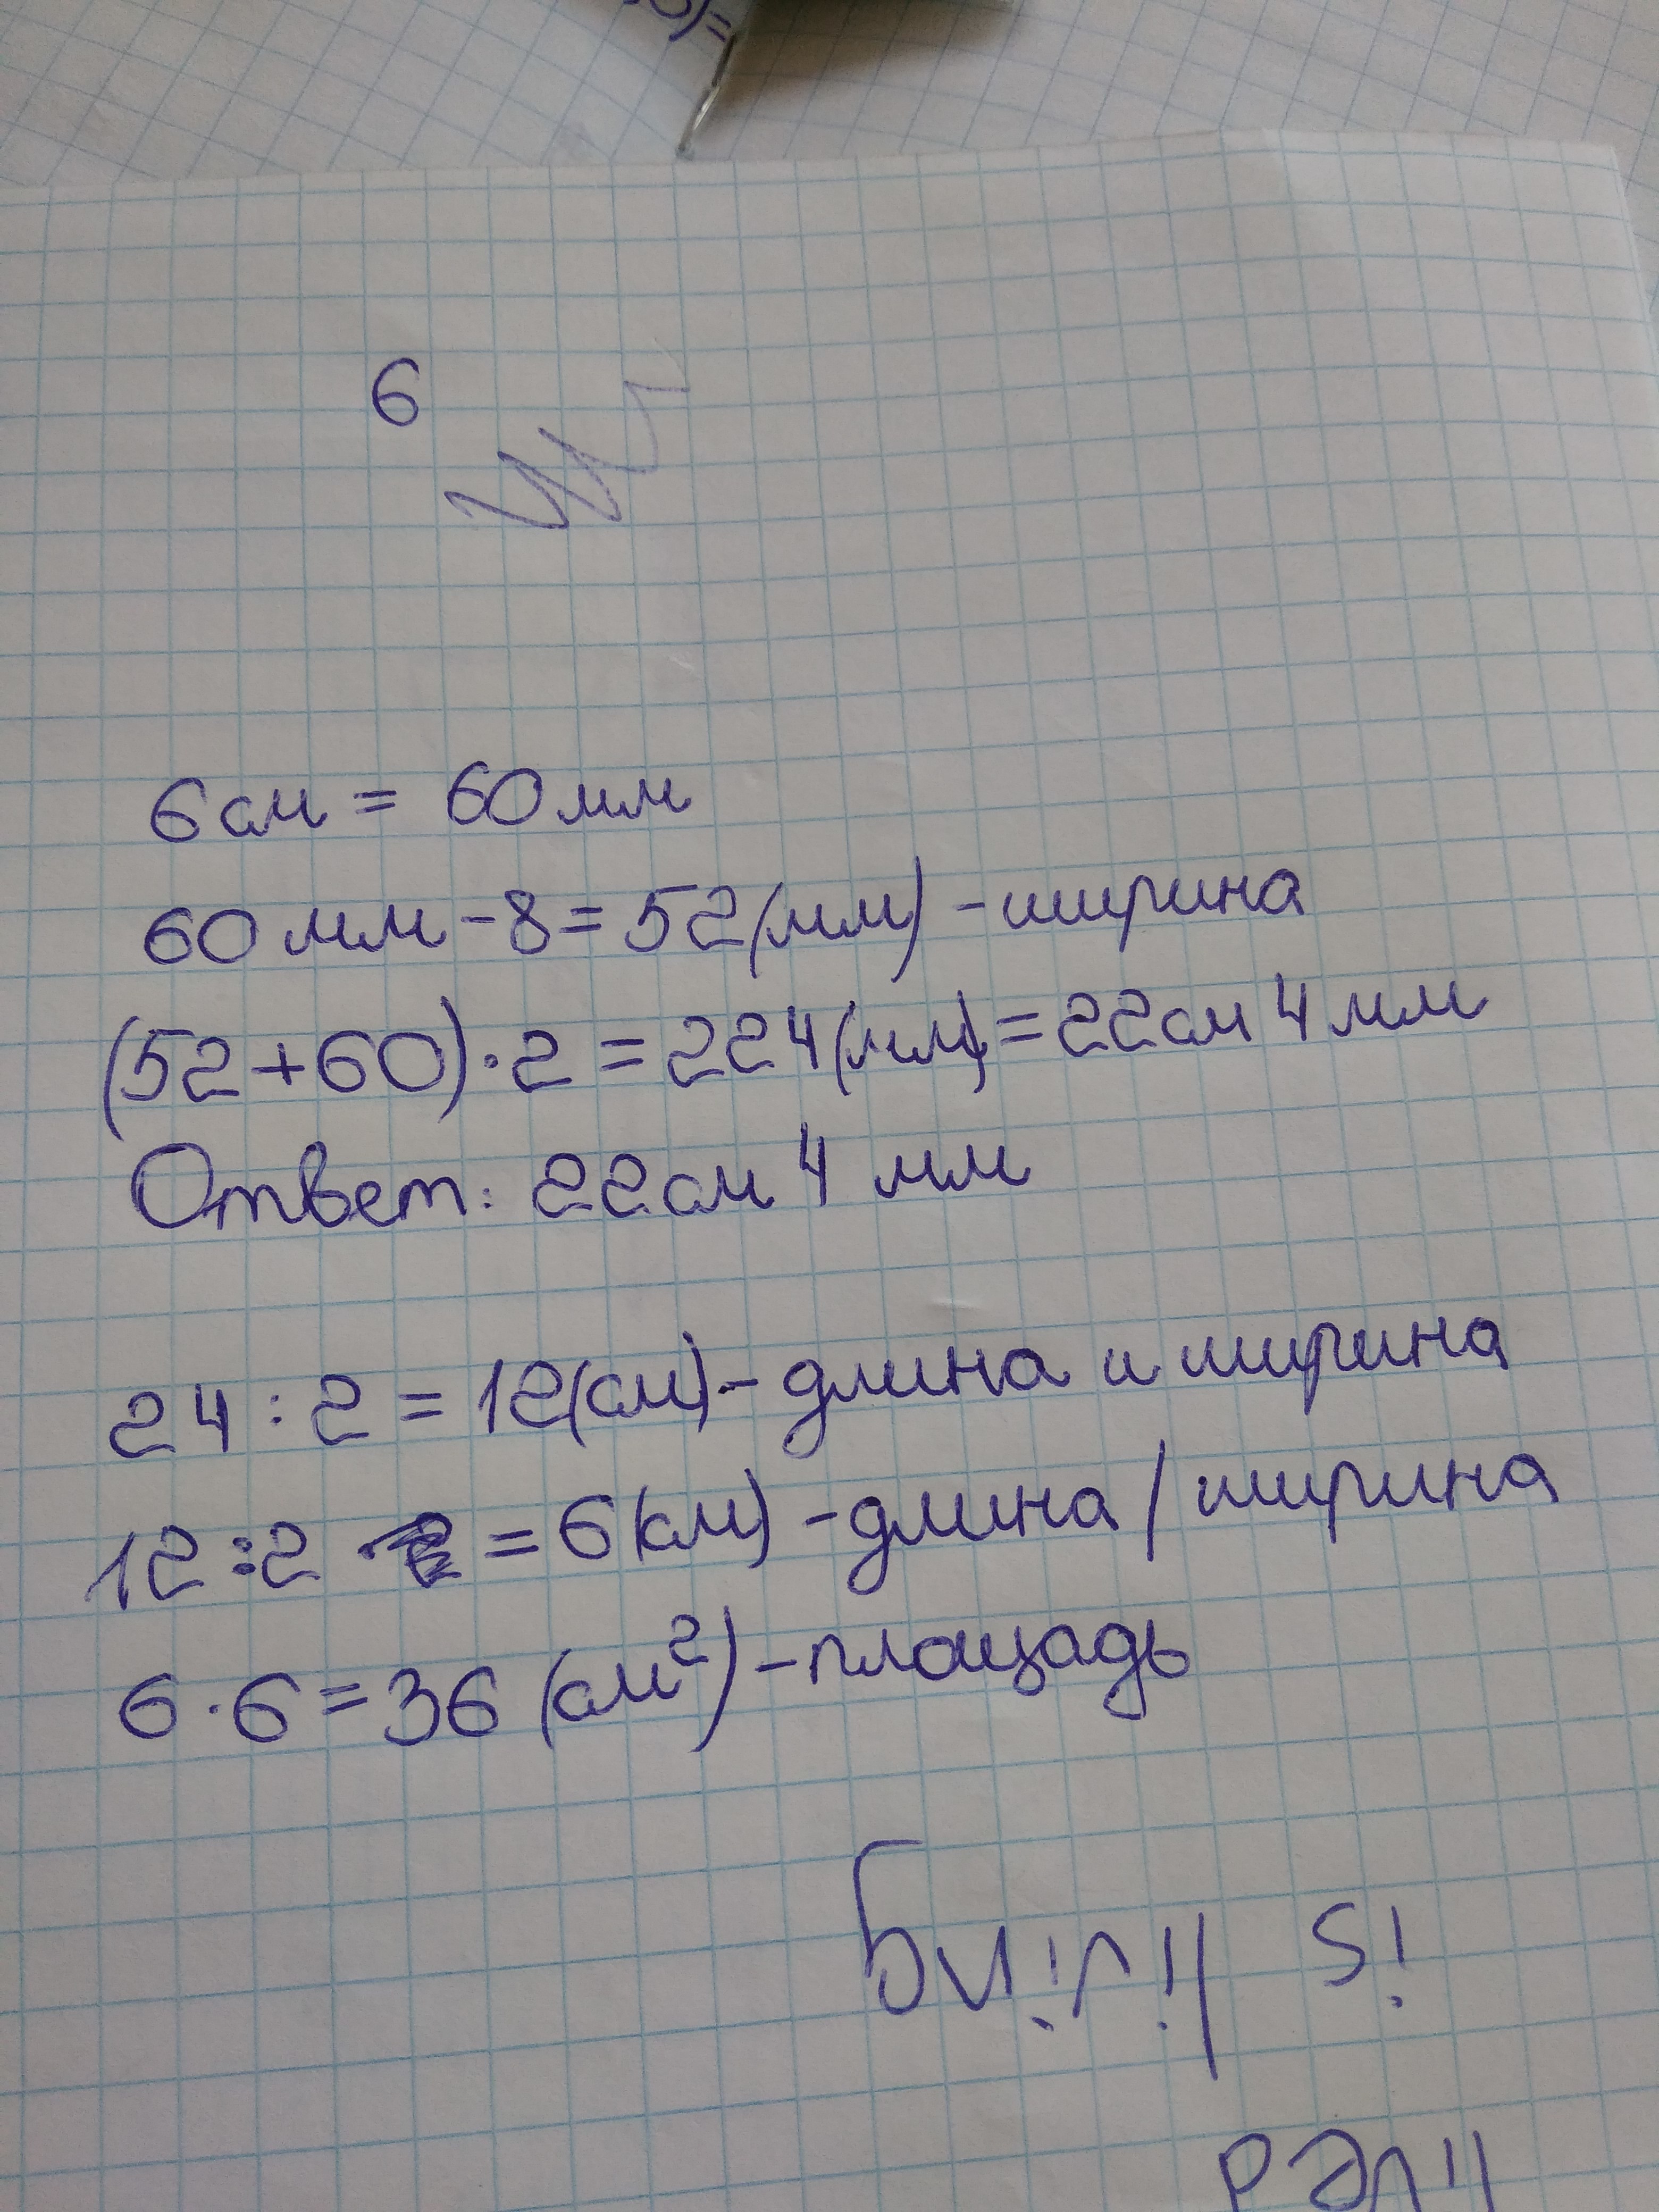 6
6 см = 60 мм
60 мм - 8 = 52 (мм) - ширина
(52+60)·2 = 224 (мм) = 22 см 4 мм
Ответ: 22 см 4 мм
24 : 2 = 12 (см) - длина и ширина
12 : 2 = 6 (см) - длина / ширина
6 · 6 = 36 (см²) - площадь
is living
lived